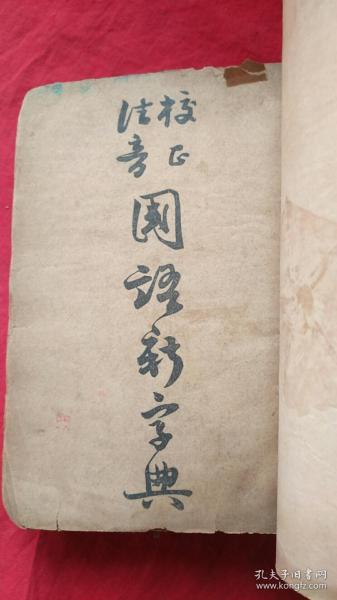 校正
注音
國語新字典
孔夫子旧书网
www.kongfz.com